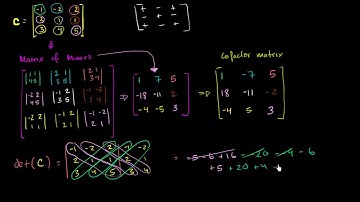 C = [-1 -2 2
2 1 1
3 4 5]
[+ - +
- + -
+ - +]
Matrix of Minors
|1 1| |2 1| |2 1|
|4 5| |3 5| |3 4|
|-2 2| |-1 2| |-1 -2|
|4 5| |3 5| |3 4|
|-2 2| |-1 2| |-1 -2|
|1 1| |2 1| |2 1|
⇒ [1 7 5
-18 -11 2
-4 -5 3]
Cofactor matrix
⇒ [1 -7 5
18 -11 -2
-4 5 3]
det(C) = |-1 -2 2 -1 -2
2 1 1 2 1
3 4 5 3 4|
= -5 - 6 + 16 - 6
+5 + 20 + 4